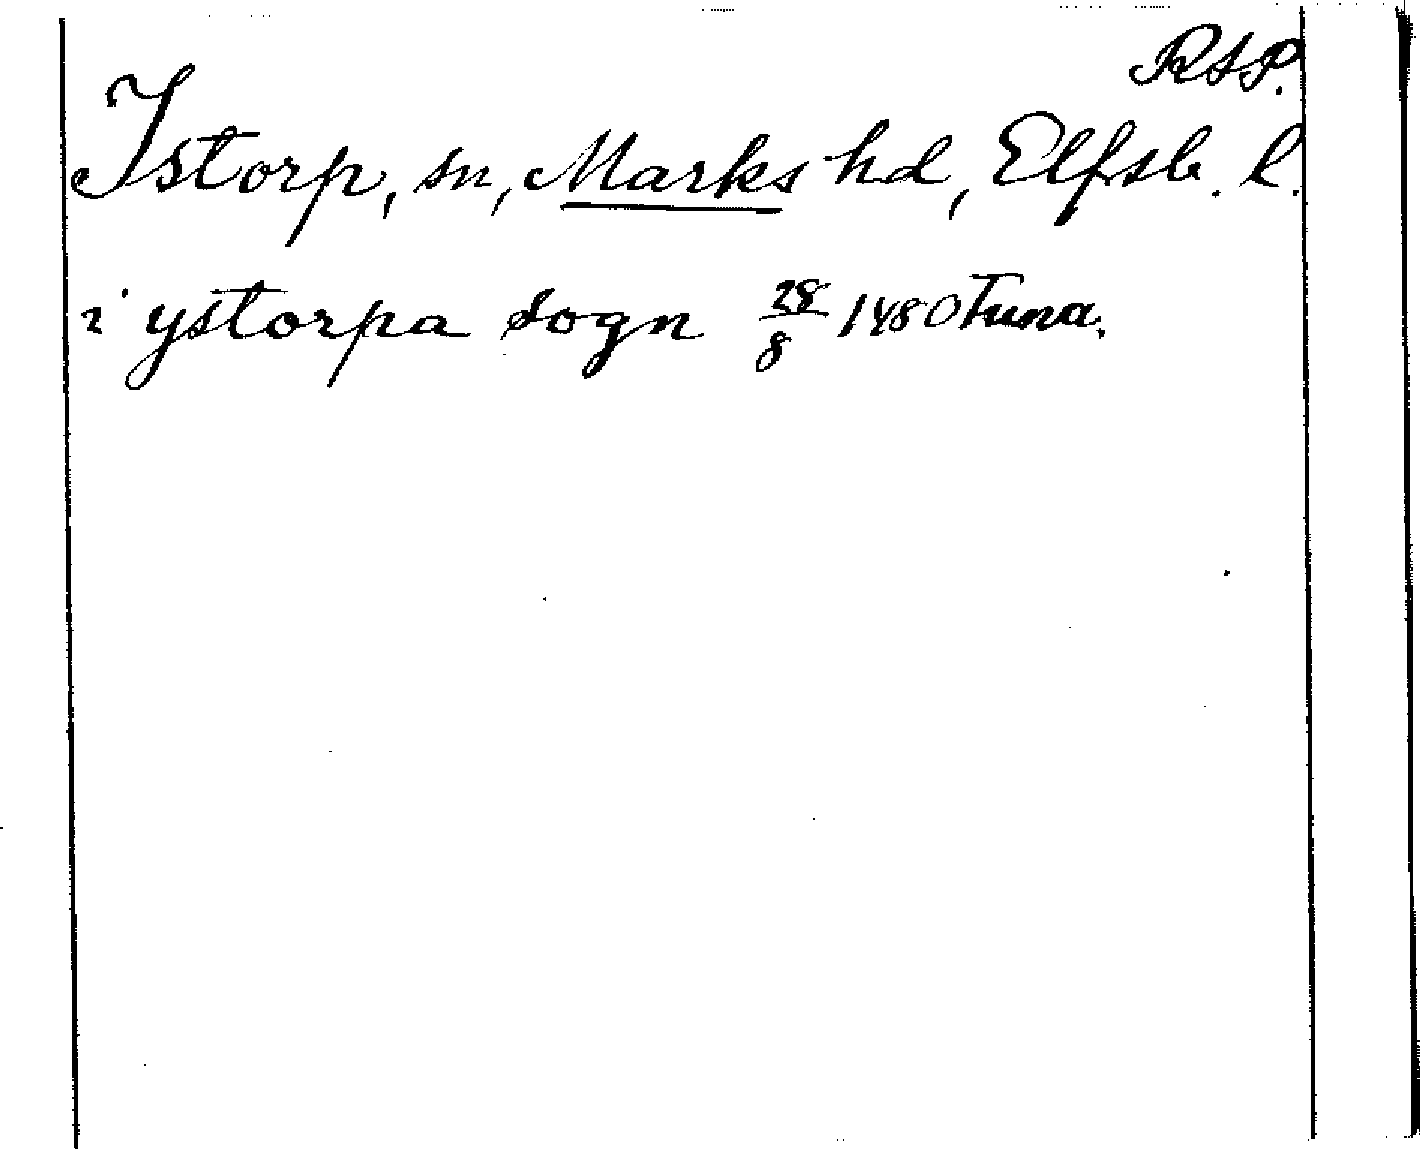 RAP.
Istorp, sn, Marks hd, Elfsb. l.
i ystorpa sogn 28/8 1480 Tuna.